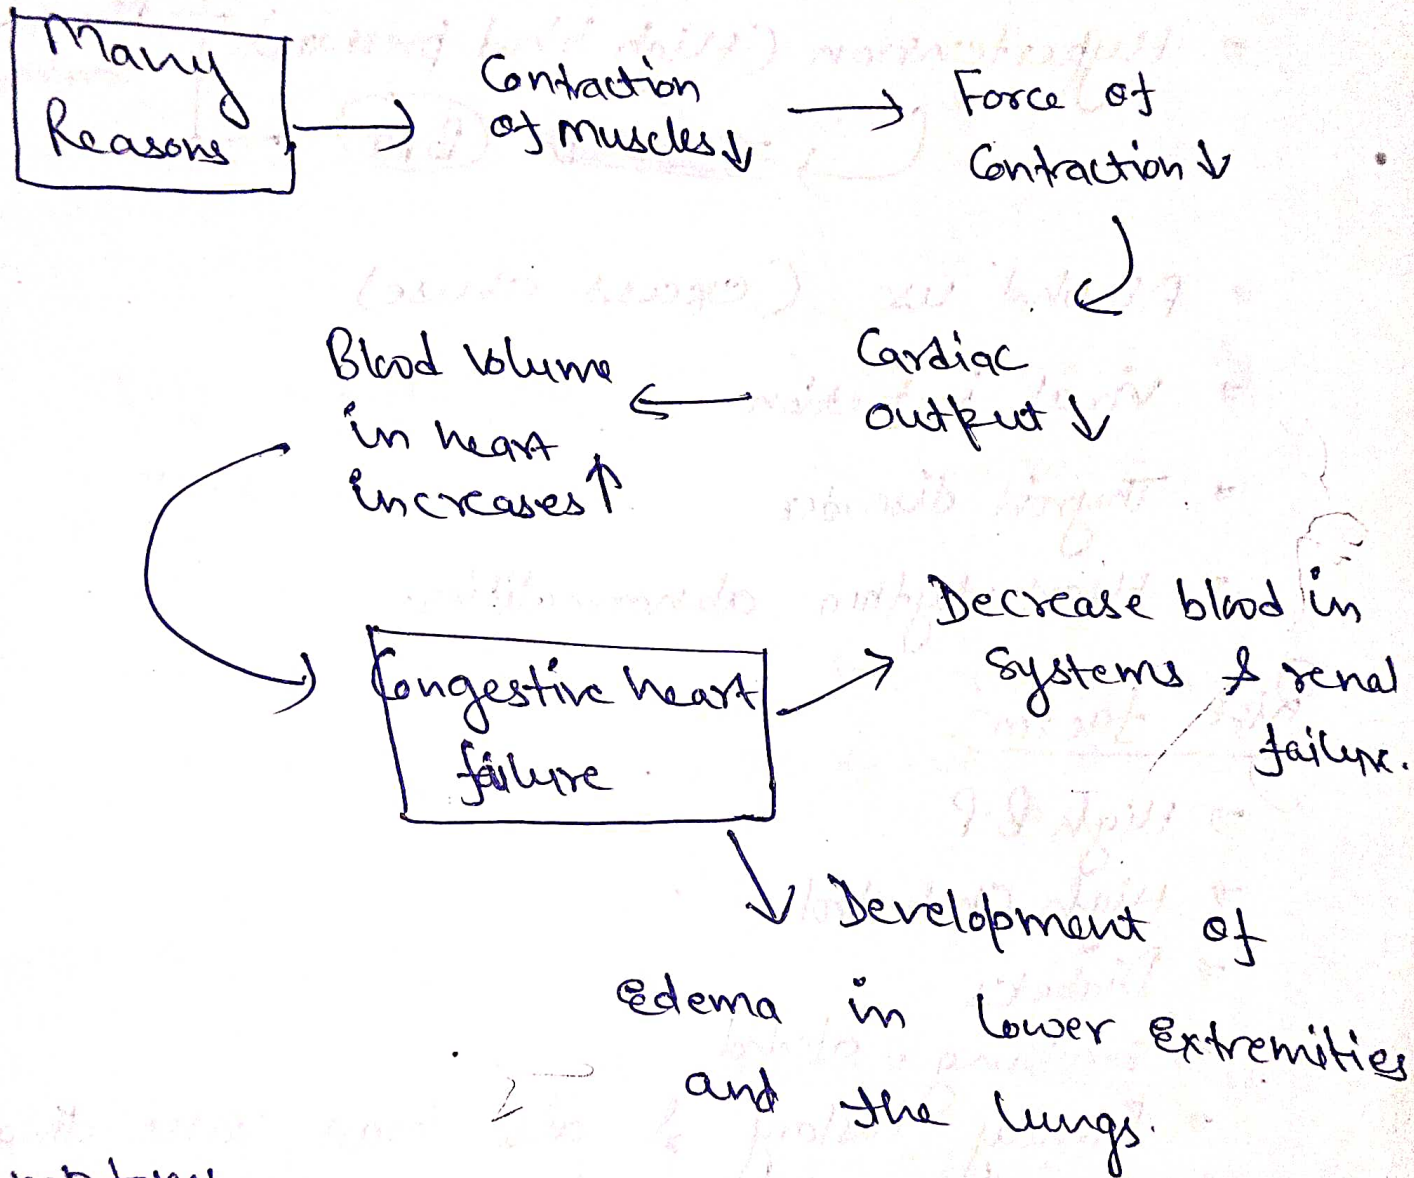 Many
Reasons
Contraction
of Muscles ↓
Force of
Contraction ↓
Cardiac
output ↓
Blood volume
in heart
increases ↑
Congestive heart
failure
Decrease blood in
systems & renal
failure.
Development of
edema in lower extremities
and the lungs.